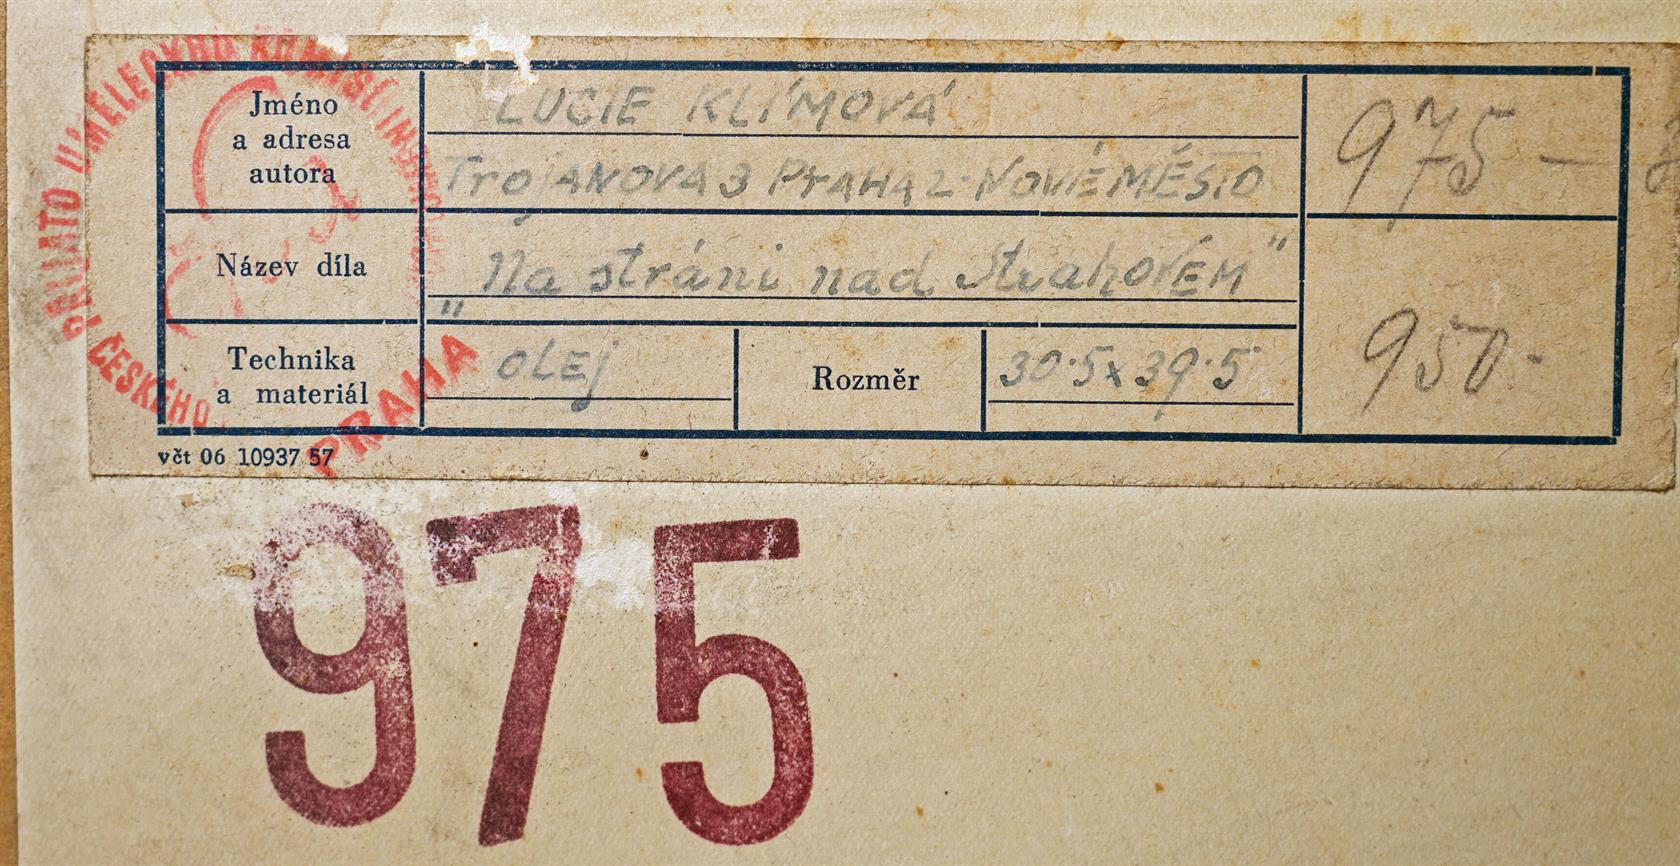 PŘIJATO UMĚLECKOU KOMISÍ
ČESKÉHO
PRAHA
Jméno
a adresa
autora
LUCIE KLÍMOVÁ
TrojANOVA 3 PrAHA 2-NOVÉ MĚSTO
975 —
Název díla
"Na stráni nad StrahovEM"
Technika
a materiál
OLEj
Rozměr
30·5x39·5
950-
včt 06 10937 57
975